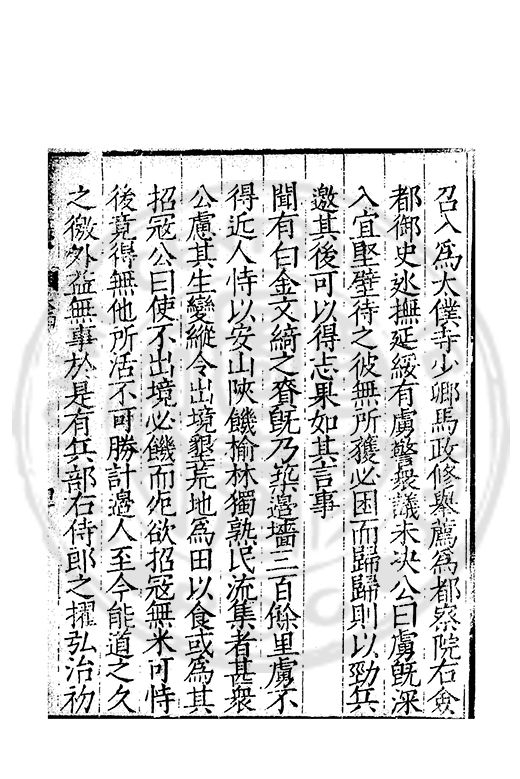 召入為太僕寺少卿馬政修舉薦為都察院右僉
都御史廵撫延綏有虜警衆議未决公曰虜既深
入宜堅壁待之彼無所獲必困而歸歸則以勁兵
邀其後可以得志果如其言事
聞有白金文綺之賚既乃築邊墻三百餘里虜不
得近人恃以安山陝饑榆林獨熟民流集者甚衆
公慮其生變縱令出境墾荒地為田以食或為其
招寇公曰使不出境必饑而死欲招寇無米可恃
後竟得無他所活不可勝計邊人至今能道之久
之徼外益無事於是有兵部右侍郎之擢弘治初